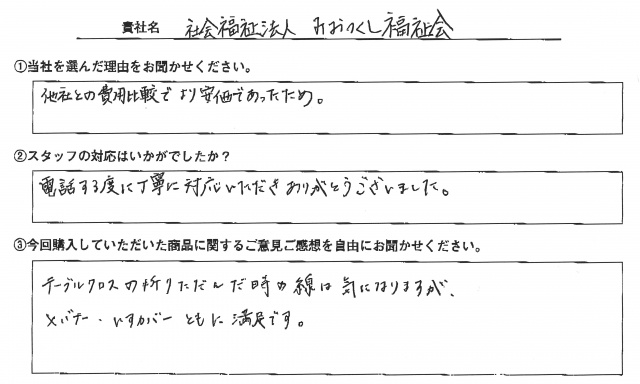 貴社名 社会福祉法人 みおつくし福祉会
①当社を選んだ理由をお聞かせください。
他社との費用比較でより安価であったため。
②スタッフの対応はいかがでしたか?
電話する度に丁寧に対応いただきありがとうございました。
③今回購入していただいた商品に関するご意見ご感想を自由にお聞かせください。
テーブルクロスの折りたたんだ時の線は気になりますが、
×バナー・いすカバーともに満足です。